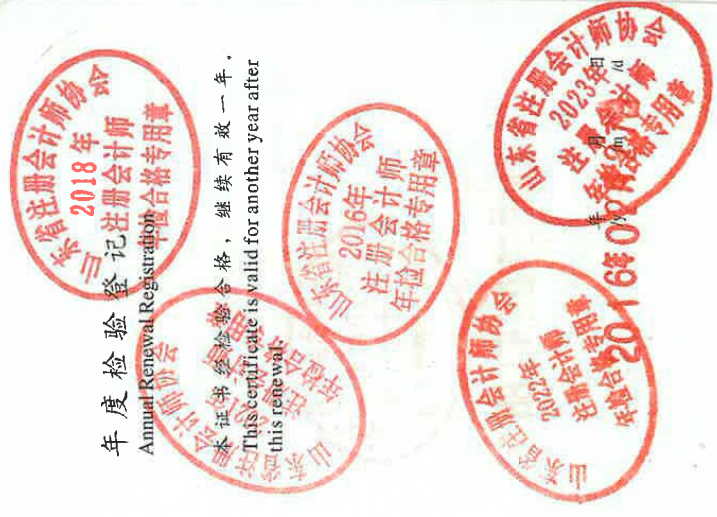 年度检验登记
Annual Renewal Registration
本证书经检验合格，继续有效一年。
This certificate is valid for another year after
this renewal.
山东省注册会计师协会
2018 年
注册会计师
年检合格专用章
山东省注册会计师协会
2016年
注册会计师
年检合格专用章
山东省注册会计师协会
年检合
山东省注册会计师协会
2023年
注册会计师
年检合格专用章
山东省注册会计师协会
2022年
注册会计师
年检合格专用章
年 月 日
/y /m /d